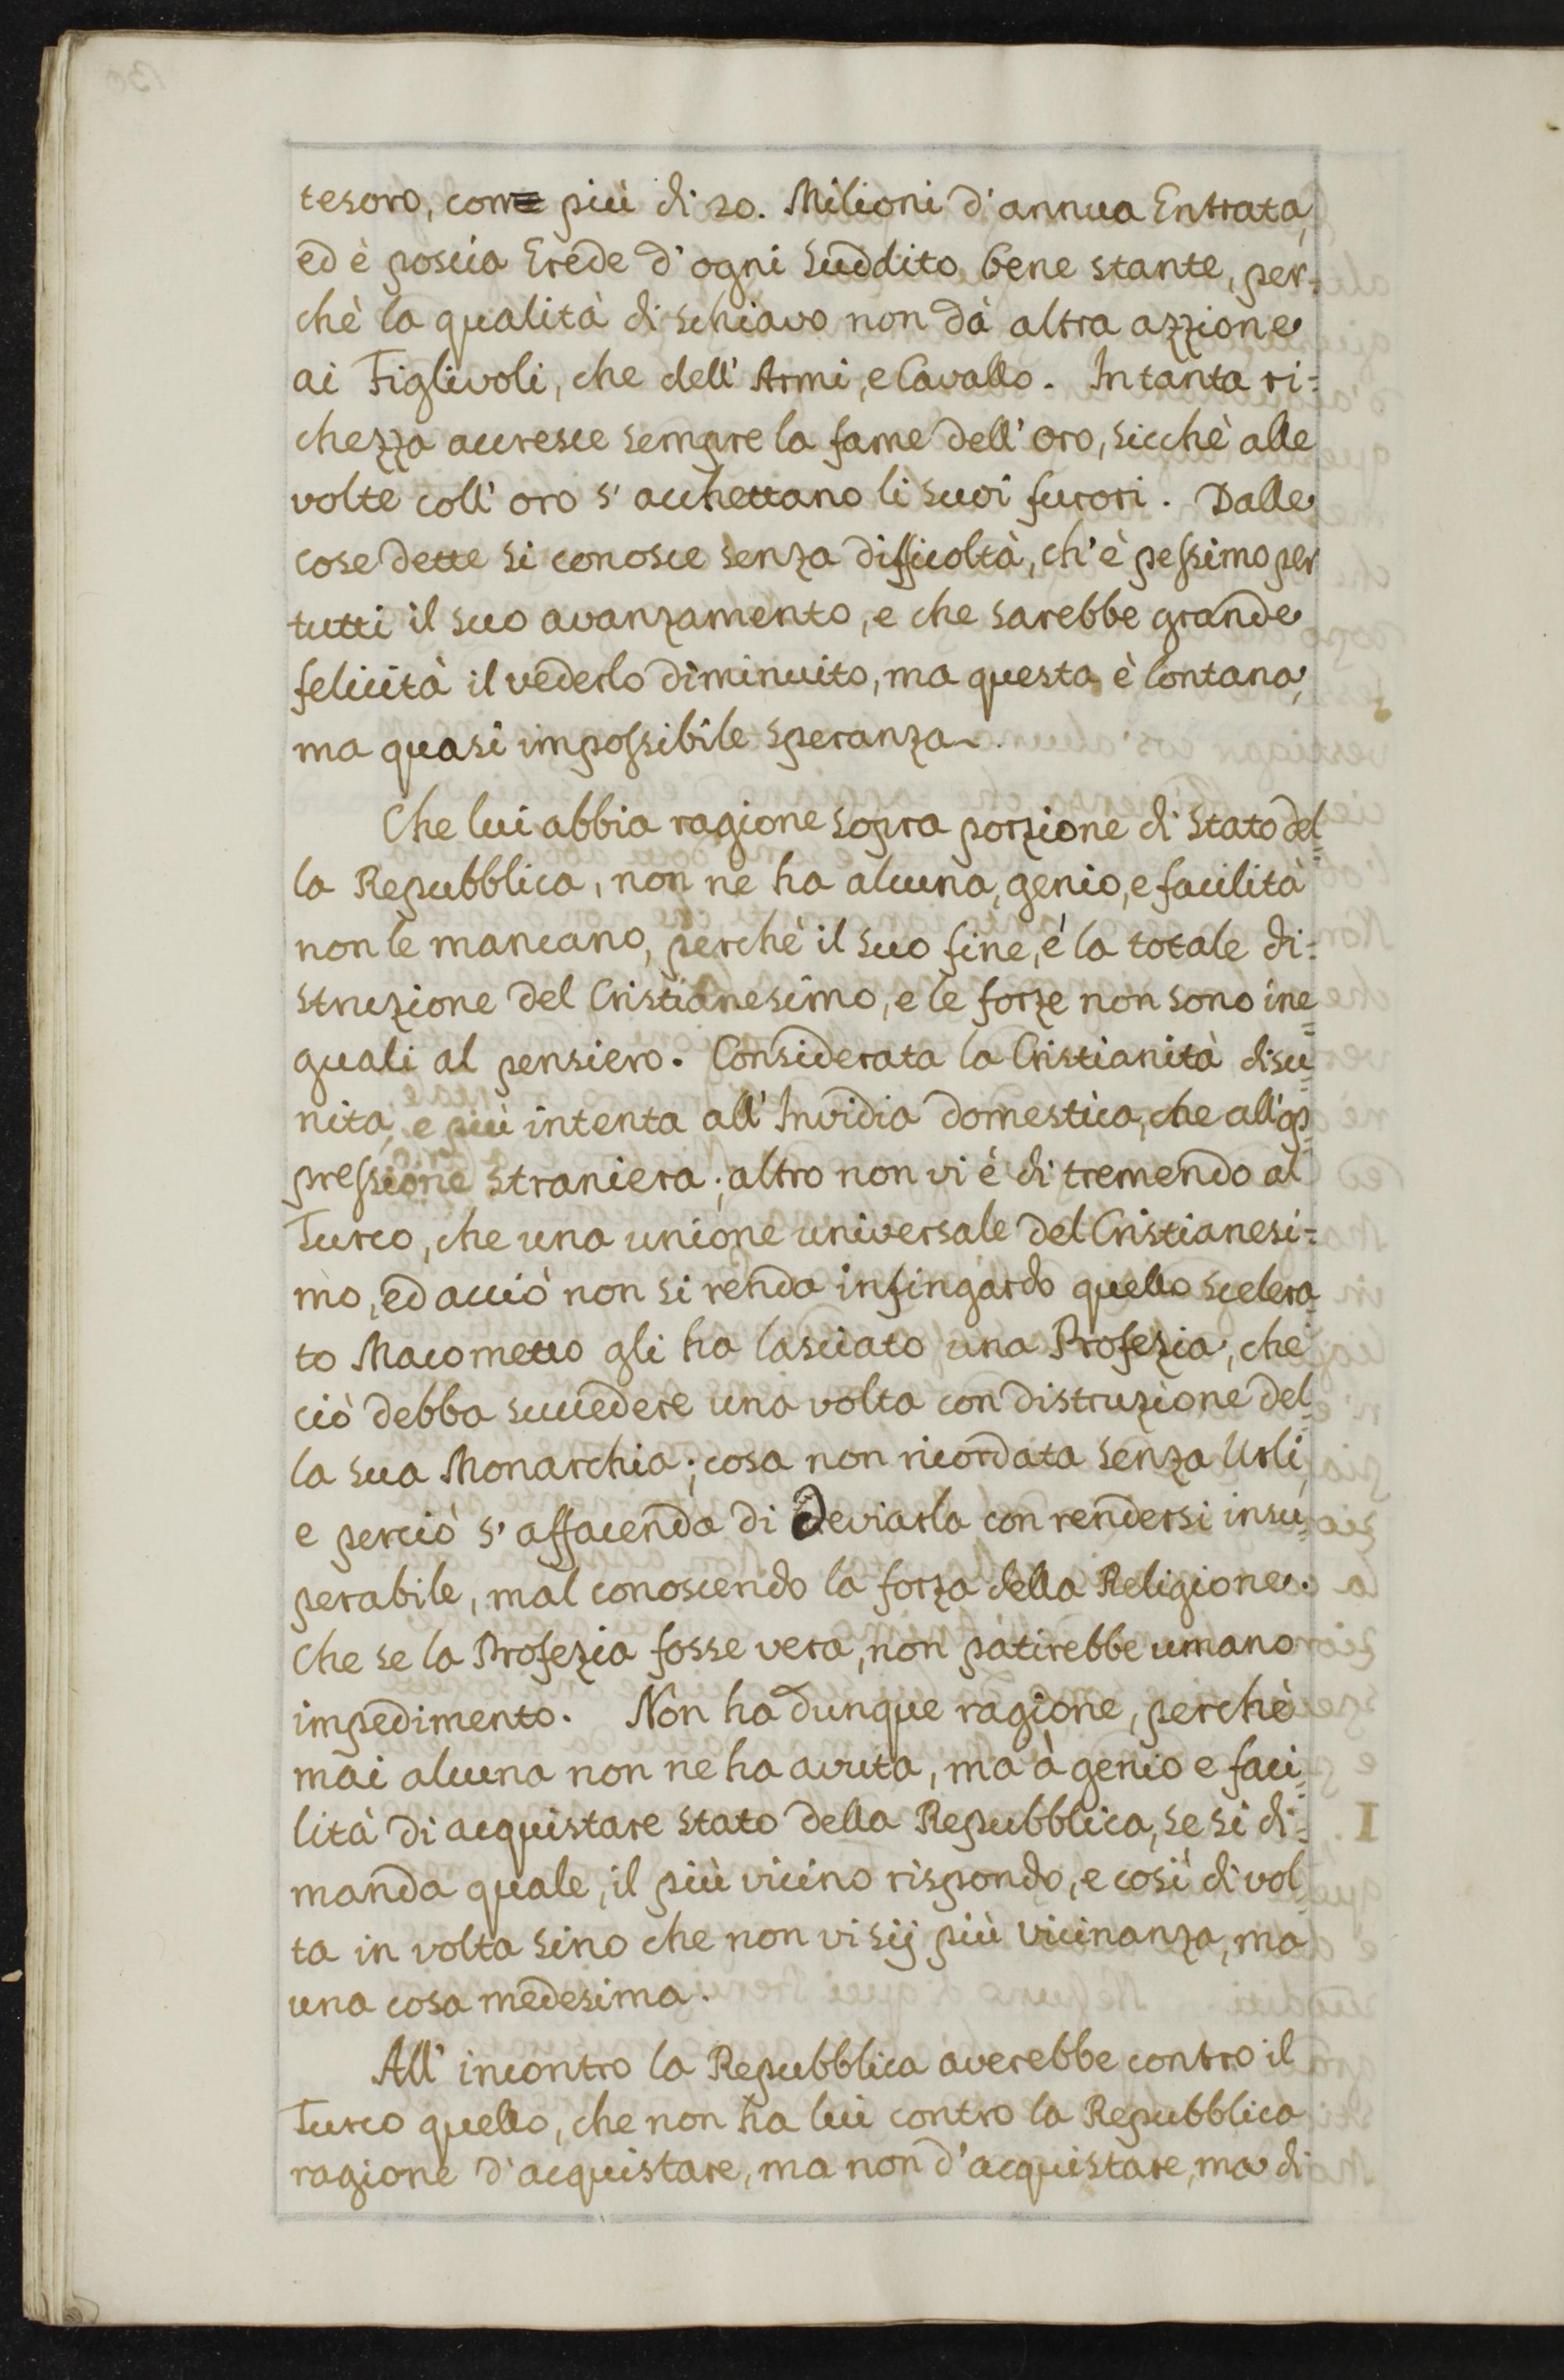 tesoro, con più di 20. Milioni d'annua Entrata,
ed è poscia Erede d'ogni Suddito bene stante, per-
chè la qualità di schiavo non dà altra azzione
ai Figlivoli, che dell'Armi, e Cavallo. In tanta ri-
chezza accresce sempre la fame dell'oro, sicchè alle
volte coll'oro s'acchettano li suoi furori. Dalle
cose dette si conosce senza difficoltà, ch'è pessimo per
tutti il suo avanzamento, e che sarebbe grande
felicità il vederlo diminuito, ma questa è lontana,
ma quasi impossibile speranza.
Che lui abbia ragione sopra porzione di Stato del=
la Repubblica, non ne ha alcuna, genio, e facilità
non le mancano, perchè il suo fine, è la totale di-
struzione del Cristianesimo, e le forze non sono ine=
guali al pensiero. Considerata la Cristianità disu=
nita, e più intenta all'Invidia domestica, che all'op=
pressione straniera; altro non vi è di tremendo al
Turco, che una unione universale del Cristianesi=
mo, ed acciò non si renda infingardo quello scelera=
to Macometto gli ha lasciato una Profezia, che
ciò debba succedere una volta con distruzione del=
la sua Monarchia; cosa non ricordata senza Urli,
e perciò s'affacenda di deviarla con rendersi insu=
perabile, mal conoscendo la forza della Religione.
Che se la Profezia fosse vera, non patirebbe umano
impedimento. Non ha dunque ragione, perchè
mai alcuna non ne ha avuta, ma à genio e faci=
lità di acquistare stato della Repubblica, se si di=
manda quale, il più vicino rispondo, e così di vol=
ta in volta sino che non vi sij più vicinanza, ma
una cosa medesima.
All'incontro la Repubblica averebbe contro il
Turco quello, che non ha lui contro la Repubblica
ragione d'acquistare, ma non d'acquistare, ma di